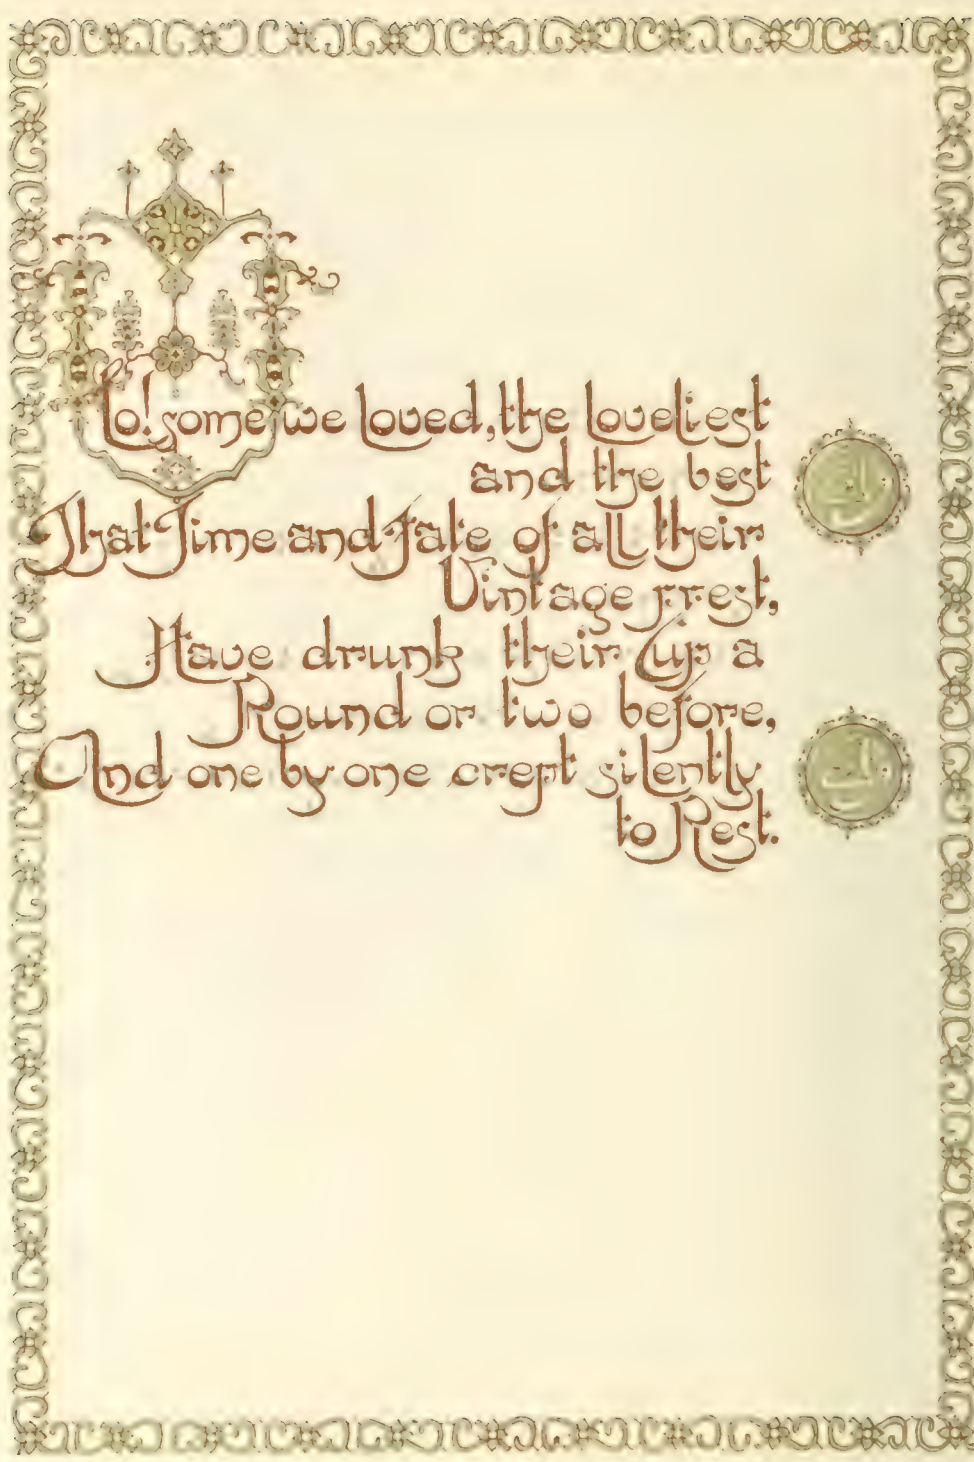 Lo! some we loved, the loveliest
and the best
That Time and Fate of all their
Vintage prest,
Have drunk their Cup a
Round or two before,
And one by one crept silently
to Rest.